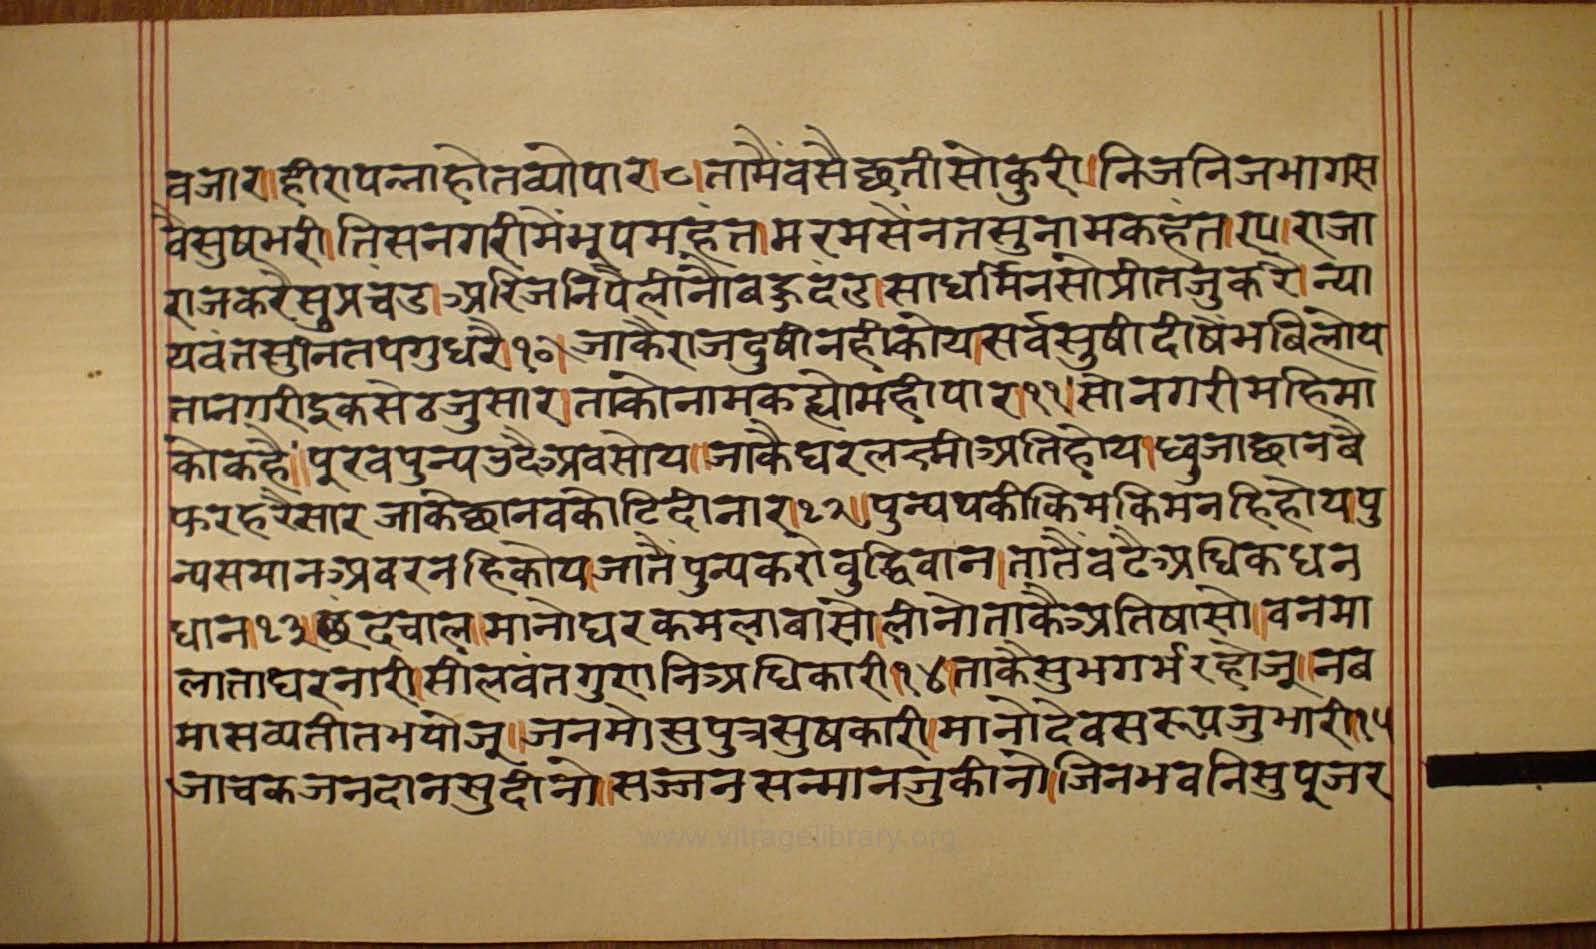 वजार॥हीरापन्नाहोतव्योपार।८।तामैंवसैछतीसोकुरी।निजनिजभागस
वैसुषभरी।तिसनगरीमेंभूपमहंत।मरमसेंनतसुनामकहंत।९॥राजा
राजकरैसुप्रचंड।अरिजनिपैलीनौबहुदंड।साधर्मिनसोप्रीतजुकरे।न्या
यवंतसुनितपगुधरै।१०।जाकैराजदुषीनहीकोय।सर्वसुषीदीषैंभबिलोय
तानगरीइकसेठजुसार।ताकोनामकह्योमहीपार।११।सोनगरीमहिमा
कोकहै॥पूरवपुन्यउदैअवसोय॥जाकैघरलक्ष्मीअतिहोय।ध्वुजाछानबै
फरहरैसार जाकेछानवकोटिदीनार।१२॥पुन्यथकीकिमकिमनहिहोय।पु
न्यसमानअवरनहिकोय।जातैंपुन्यकरोबुद्धिवान।तातैंवढैअधिकधन
धान।१३।छंदचाल॥मानोघरकमलाबासो।लीनोताकैअतिषासो॥वनमा
लाताघरनारी।सीलवंतगुणनिअधिकारी।१४।ताकैसुभगर्भरहोजू॥नब
मासव्यतीतभयोजू॥जनमोसुपुत्रसुषकारी।मानोदेवसरूपजुभारी।१५
जाचकजनदानसुदीनो॥सज्जनसन्मानजुकीनो।जिनभवनिसुपूजर
www.vitragelibrary.org